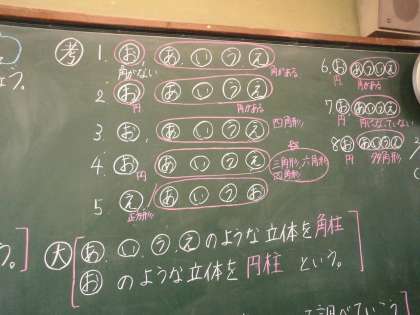 考 1. お, あ い う え 6. お あ う い え
角がない 角がある 円 角がある
2 お あ い う え 7 お あ い う え
円 角がある 円
3 お あ い う え 四角形 8 お あ い う え
円 多角形
4. お あ い う え 三角形, 六角形
円 四角形
5. え あ い う お
正方形
大 あ. い. う. え のような立体を 角柱
お のような立体を 円柱 という。
う。
て調べていこう